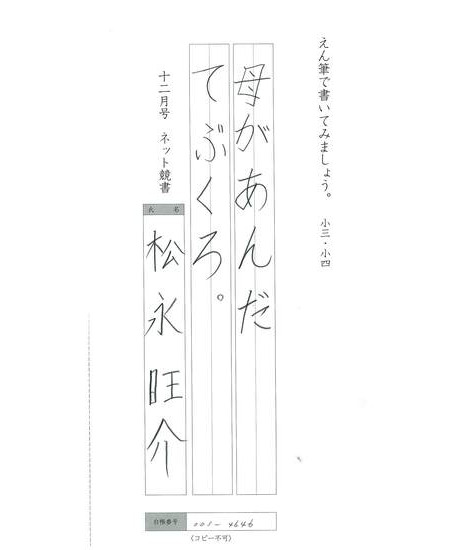 えん筆で書いてみましょう。 小三・小四
母があんだ
てぶくろ。
十二月号 ネット競書
氏 名
松永旺介
台帳番号 001-4646
(コピー不可)